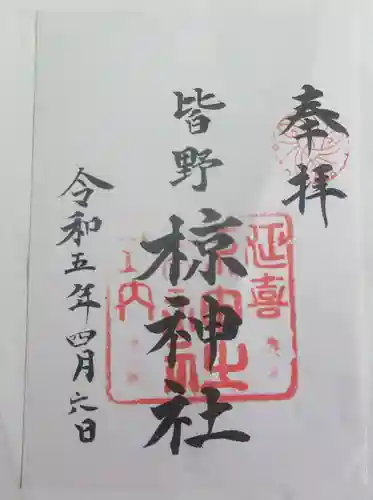 奉拝
皆野
椋神社
延喜
式内
令和五年四月六日